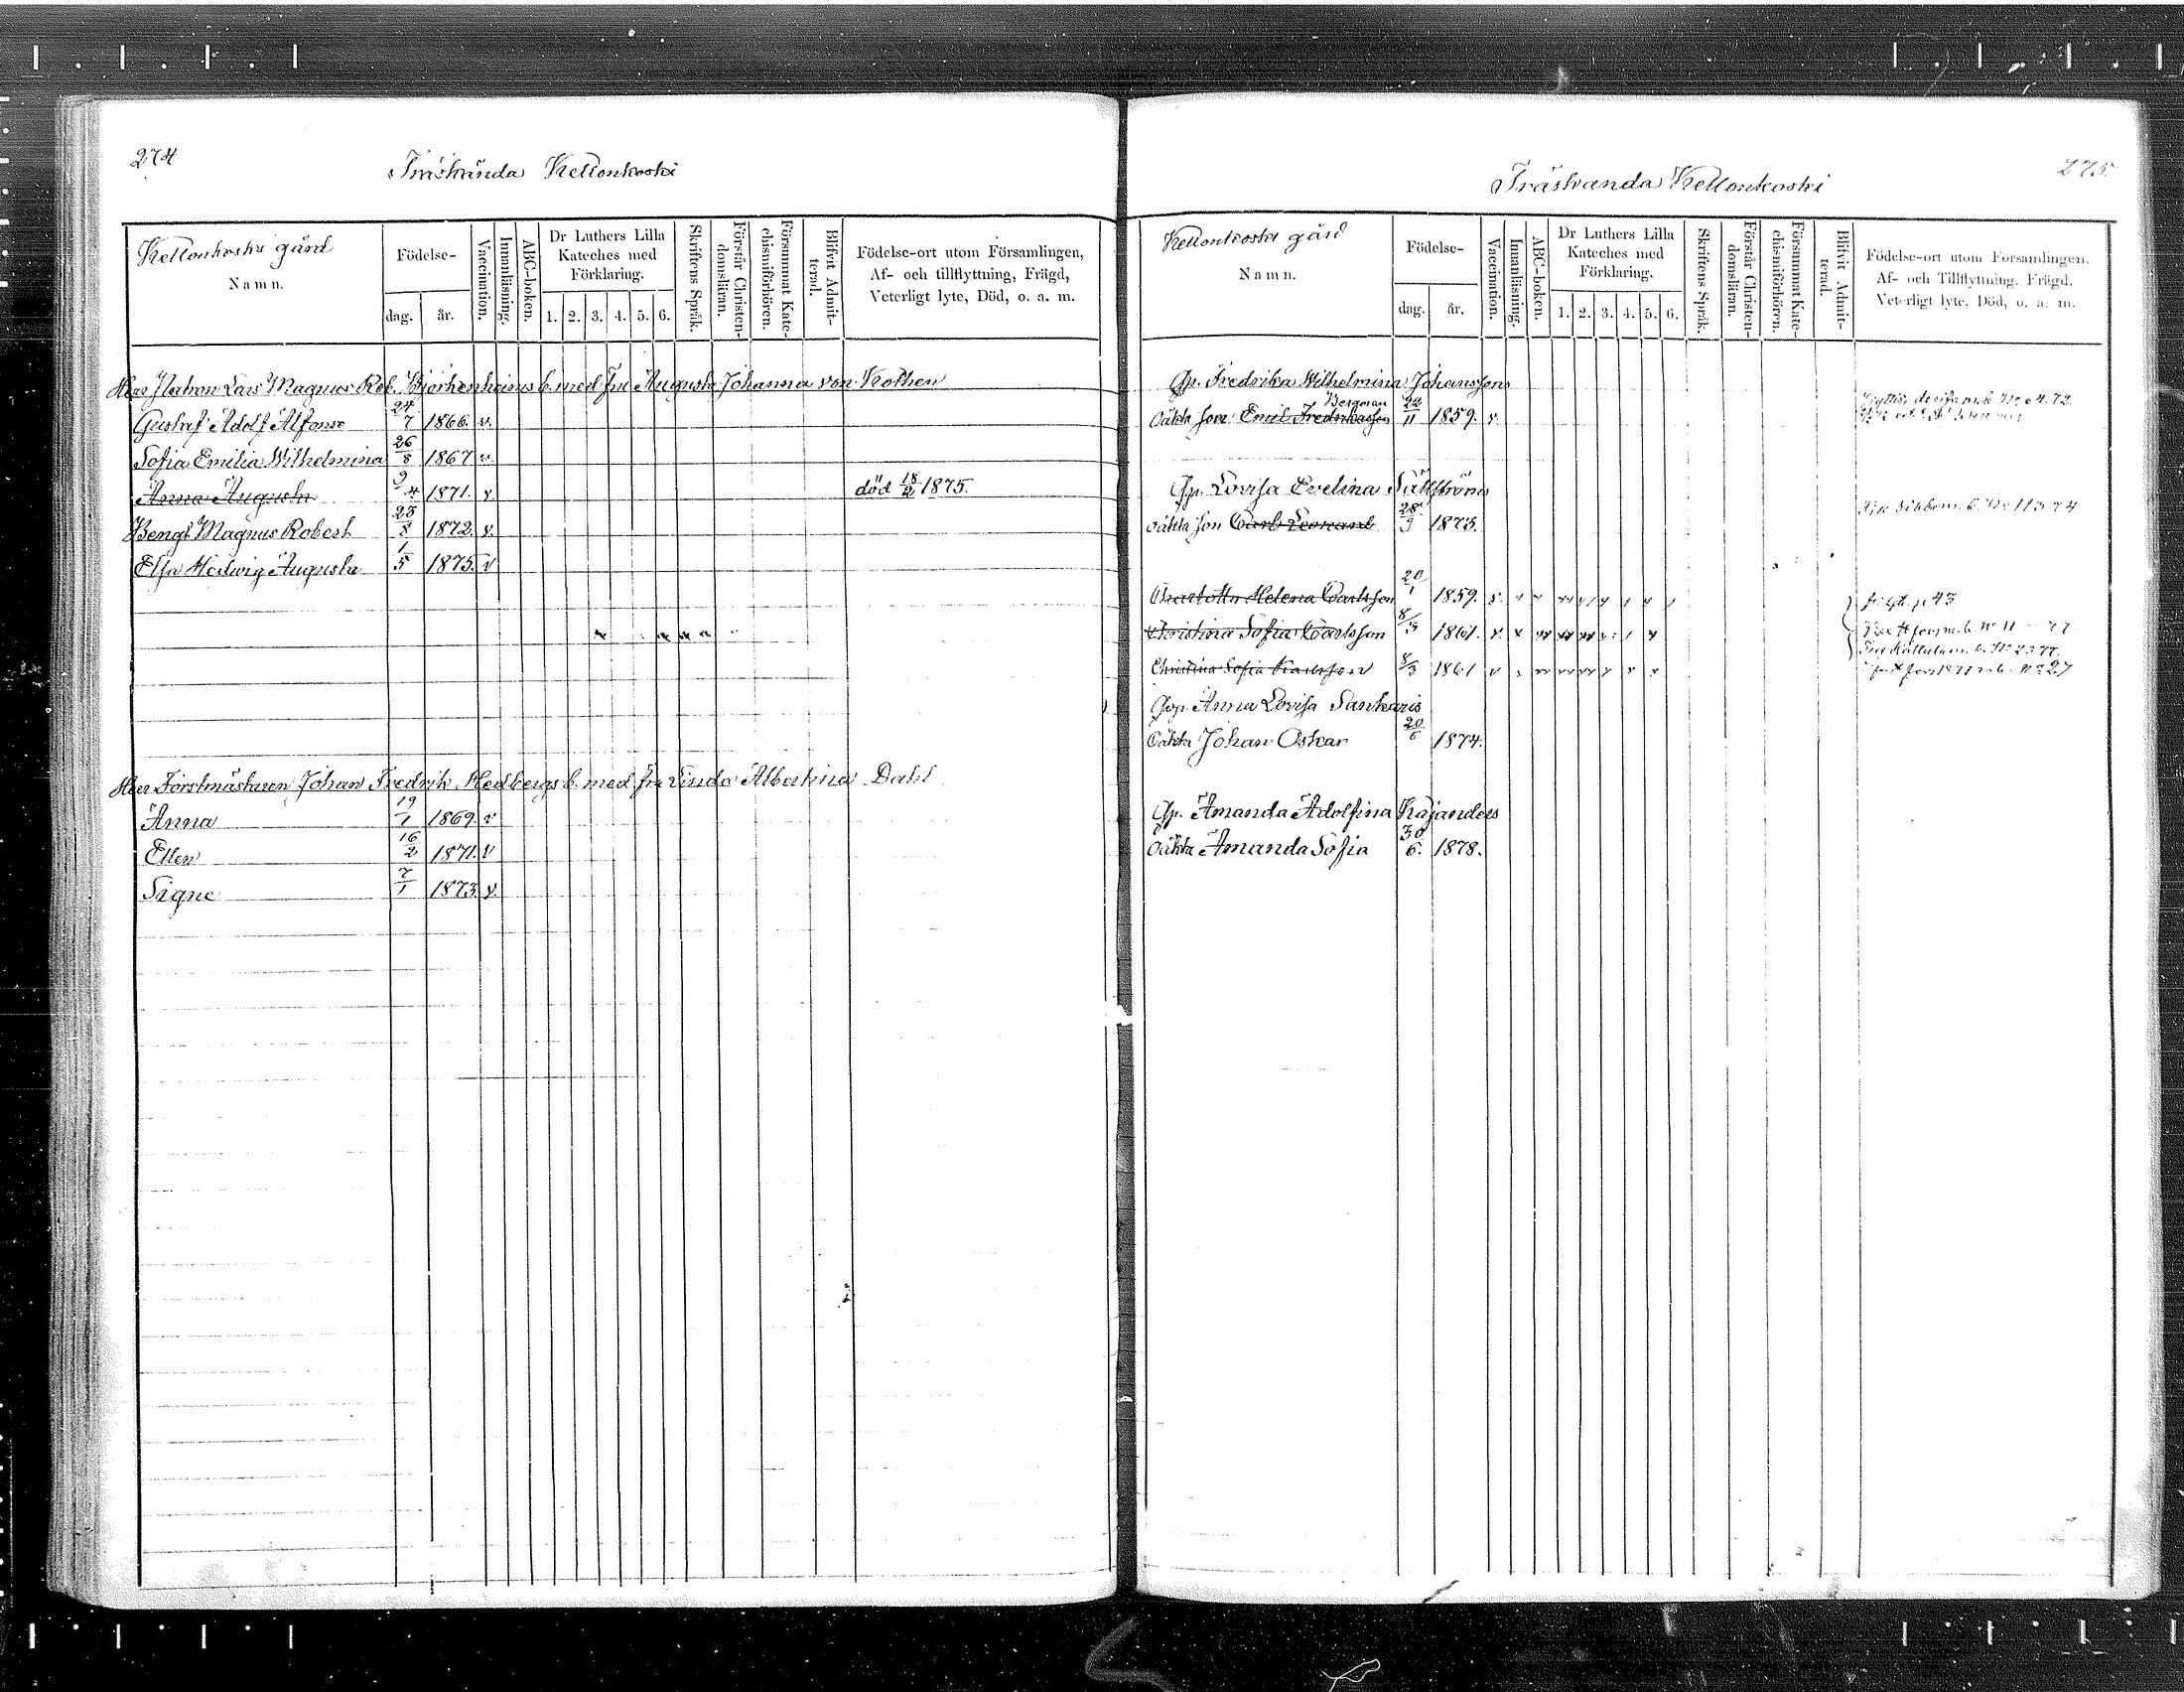 274
Träskända Kellonkoski
Kellonkoski gård
Namn.
Födelse-
dag.
år.
Vaccination.
Innanläsning.
ABC-boken.
Dr Luthers Lilla
Kateches med
Förklaring.
1. 2. 3. 4. 5. 6.
Skriftens Språk.
Förstår Christen-
domsläran.
Försummat Kate-
chismiförhören.
Blifvit Admit-
terad.
Födelse-ort utom Församlingen,
Af- och tillflyttning, Frägd,
Veterligt lyte, Död, o. a. m.
Herr Patron Lars Magnus Rob. Björkenheims b. med Fru Augusta Johanna von Kothen
Gustaf Adolf Alfonse 24/7 1866. v.
Sofia Emilia Wilhelmina 26/8 1867 v.
Anna Augusta 9/4 1871. v. död 18/2 1875.
Bengt Magnus Robert 23/8 1872. v.
Elsa Hedwig Augusta 1/5 1875. v
Herr Forstmästaren Johan Fredrik Hedbergs b. med fru Linda Albertina Dahl
Anna 19/1 1869. v
Ellen 16/2 1871. v
Signe 7/1 1873. v.
275.
Träskända Kellonkoski
Kellonkoski gård
Namn.
Födelse-
dag.
år.
Vaccination.
Innanläsning.
ABC-boken.
Dr Luthers Lilla
Kateches med
Förklaring.
1. 2. 3. 4. 5. 6.
Skriftens Språk.
Förstår Christen-
domsläran.
Försummat Kate-
chismiförhören.
Blifvit Admit-
terad.
Födelse-ort utom Församlingen.
Af- och Tillflyttning. Frägd.
Veterligt lyte. Död, o. a. m.
Qp. Fredrika Wilhelmina Johanssons
Bergman
oäkta son Emil Fredriksson 22/11 1859. v.
Qp. Lovisa Evelina Sällströms
oäkta son Carl Leonard 28/9 1873.
Charlotta Helena Carlsson 20/1 1859. v.
Christina Sofia Carlsson 8/3 1861. v.
Christina Sofia Karlsson 8/3 1861 v
Qvp. Anna Lovisa Sankaris
Oäkta Johan Oskar 20/6 1874.
Qp. Amanda Adolfina Kajanders
Oäkta Amanda Sofia 30/6. 1878.